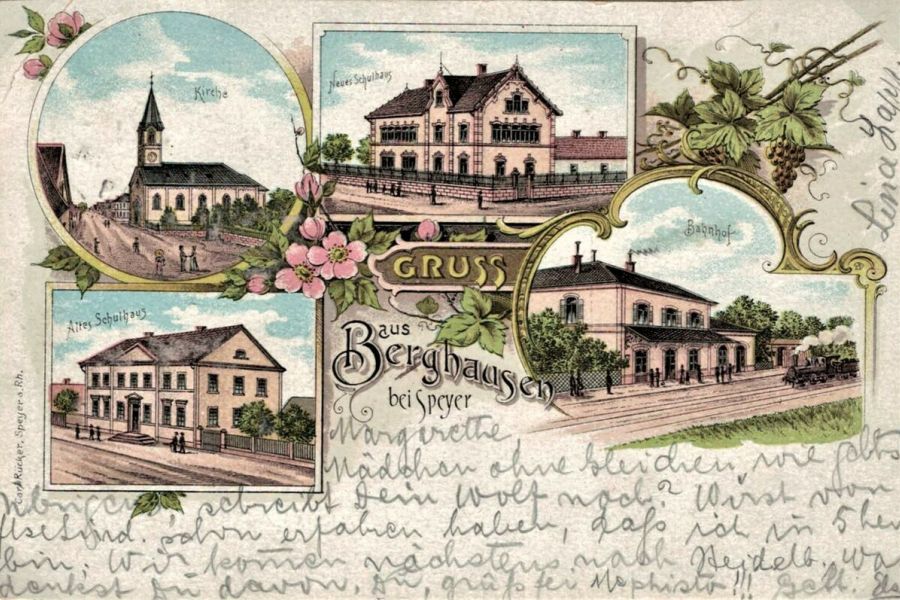 Kirche
Neues Schulhaus
Bahnhof
Altes Schulhaus
GRUSS
aus
Berghausen
bei Speyer
Carl Rücker, Speyer a. Rh.
Lina
Margarethe,
Mädchen ohne Gleichen, wie gehts
schreibt Dein Wolf noch? Wirst von
schon erfahren haben, daß ich in
bin. Wir komen nächstens nach Heidelb. Was
denkst Du davon, Du, grüß Mephisto!!! Gelt.